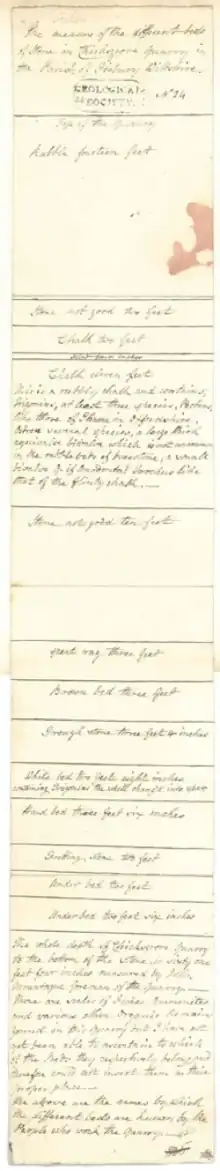 The measure of the different beds
of Stone in Chicksgrove Quarry in
the Parish of Tisbury Wiltshire.
GEOLOGICAL
SOCIETY
No 24
Top of the Quarry
Rubble fourteen feet
Stone not good two feet
Chalk two feet
Flint four inches
Chalk eleven feet
This is a rubbly chalk and contains,
at least three species,
like those of Thame in Oxfordshire,
several species, a large thick
bivalve which is not uncommon
in the rubble beds of freestone, a small
bivalve & if
that of the flinty chalk.
Stone not good ten feet
rag three feet
Brown bed three feet
Trough stone three feet 4 inches
White bed two feet eight inches
containing the shell chang'd into spar
Hard bed three feet six inches
Stone two feet
Under bed two feet
Under bed two feet six inches
The whole depth of Chicksgrove Quarry
to the bottom of the stone is sixty one
feet four inches measured by
foreman of the Quarry.
There are scales of Fishes
and various other Organic Remains
found in this Quarry but I have not
yet been able to ascertain to which
of the Beds they respectively belonged
therefore could not insert them in their
proper place.
The above are the names by which
the different beds are known by the
People who work the Quarry.